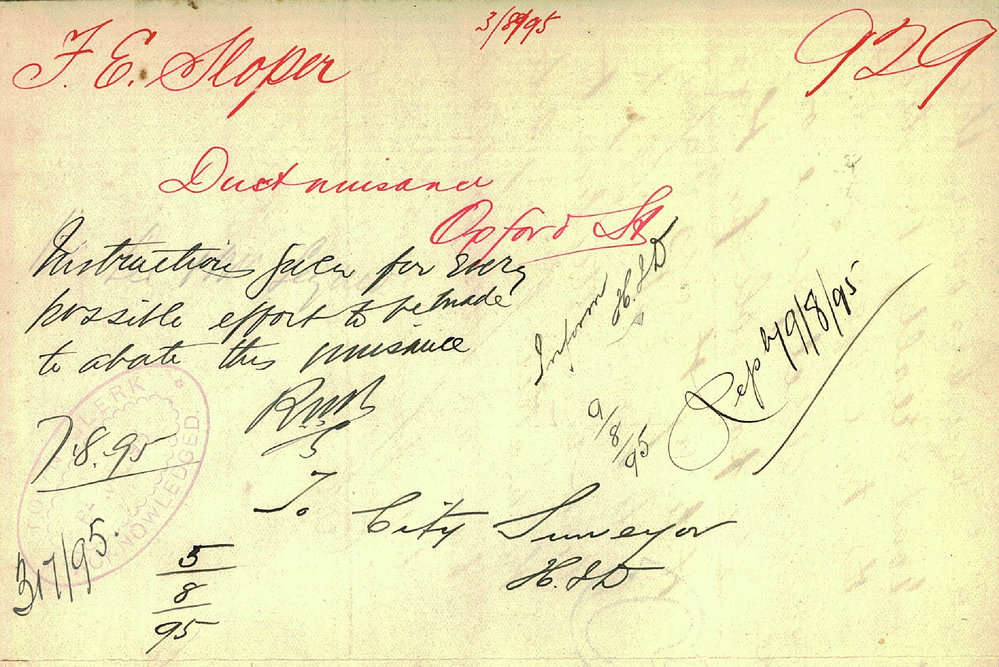 3/8/95
F. E. Sloper
929
Dust nuisance
Oxford St
Instructions given for every
possible effort to be made
to abate this nuisance
RWR
7.8.95
TOWN CLERK
ACKNOWLEDGED
31/7/95.
5
8
95
To City Surveyor
H.S.D
Inform
H.S.D
9/8/95
Reply 9/8/95